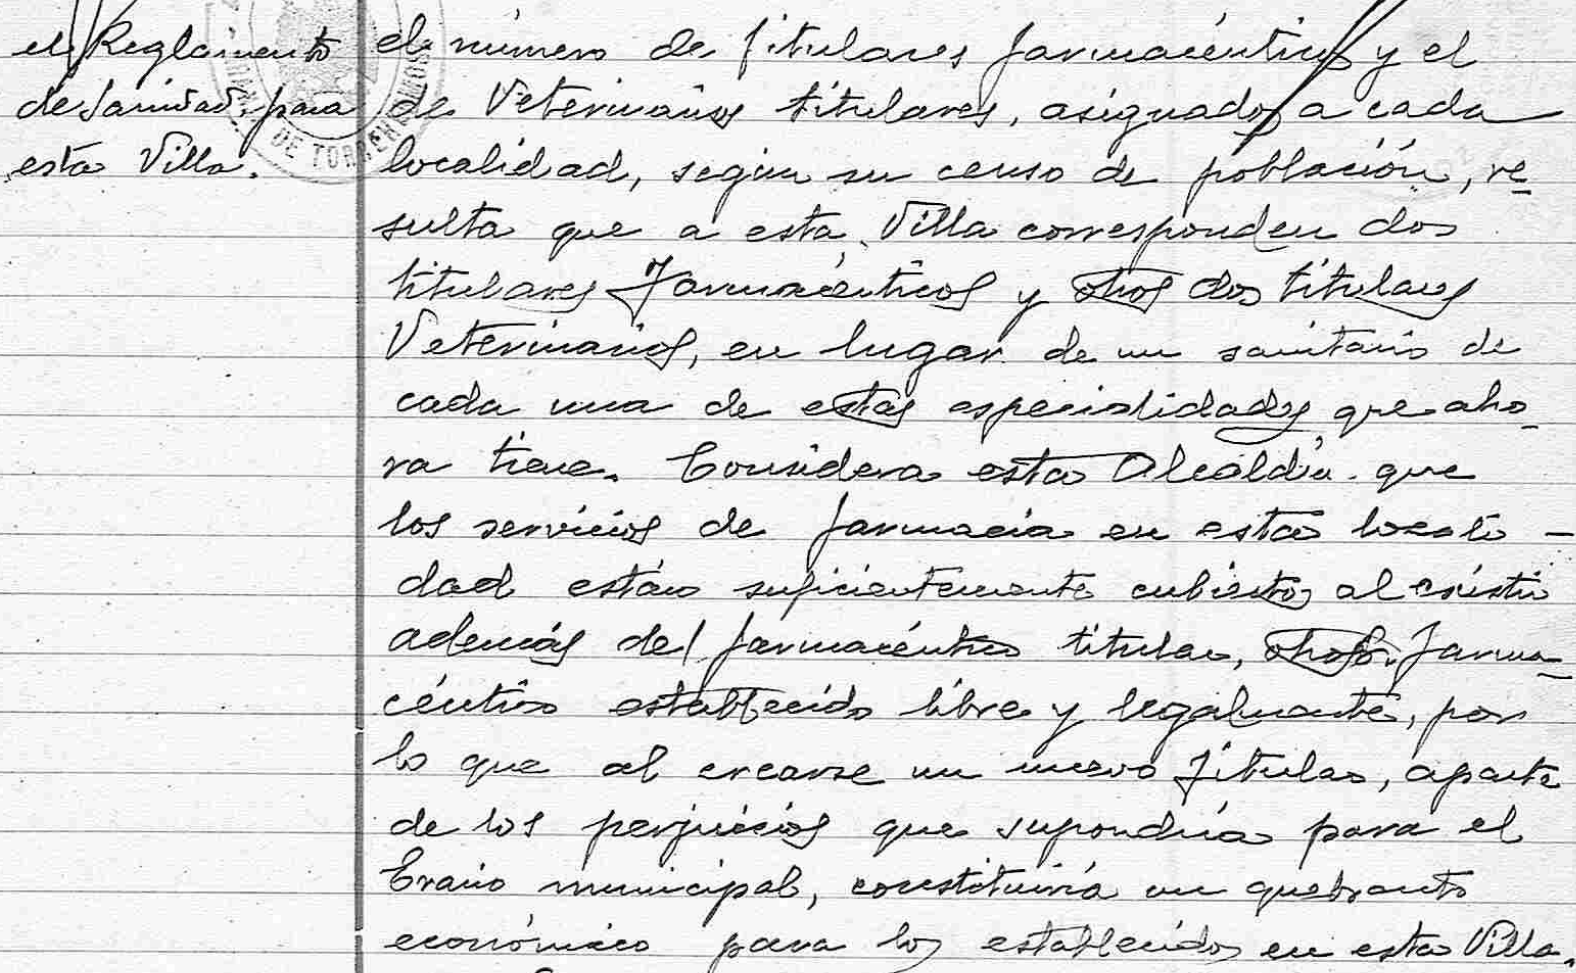 el Reglamento
de Sanidad, para
esta Villa.
DE TORRE
el número de titulares farmacéuticos y el
de Veterinarios titulares, asignados a cada
localidad, según su censo de población, re-
sulta que a esta Villa corresponden dos
titulares Farmacéuticos y otros dos titulares
Veterinarios, en lugar de un sanitario de
cada una de estas especialidades que aho-
ra tiene. Considera esta Alcaldía que
los servicios de farmacia en esta locali-
dad están suficientemente cubiertos al existir
además del farmacéutico titular, otro Farma-
céutico establecido libre y legalmente, por
lo que al crearse un nuevo titular, aparte
de los perjuicios que supondría para el
Erario municipal, constituiría un quebranto
económico para los establecidos en esta Villa.